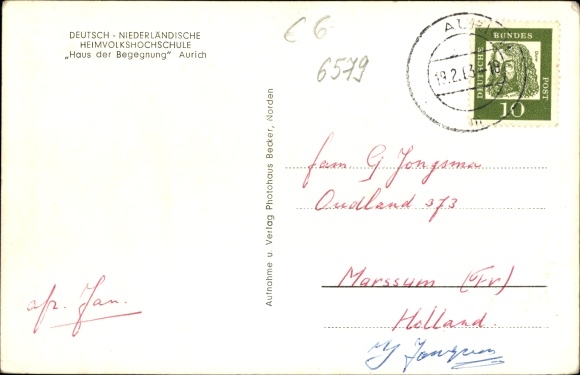 DEUTSCH - NIEDERLÄNDISCHE
HEIMVOLKSHOCHSCHULE
„Haus der Begegnung" Aurich
€ 6
6579
19.2.63
DEUTSCHE
BUNDES
POST
10
Aufnahme u. Verlag Photohaus Becker, Norden
fam. G Jongsma
Oudland 373
Marssum (Fr)
Holland.
afz. Jan.